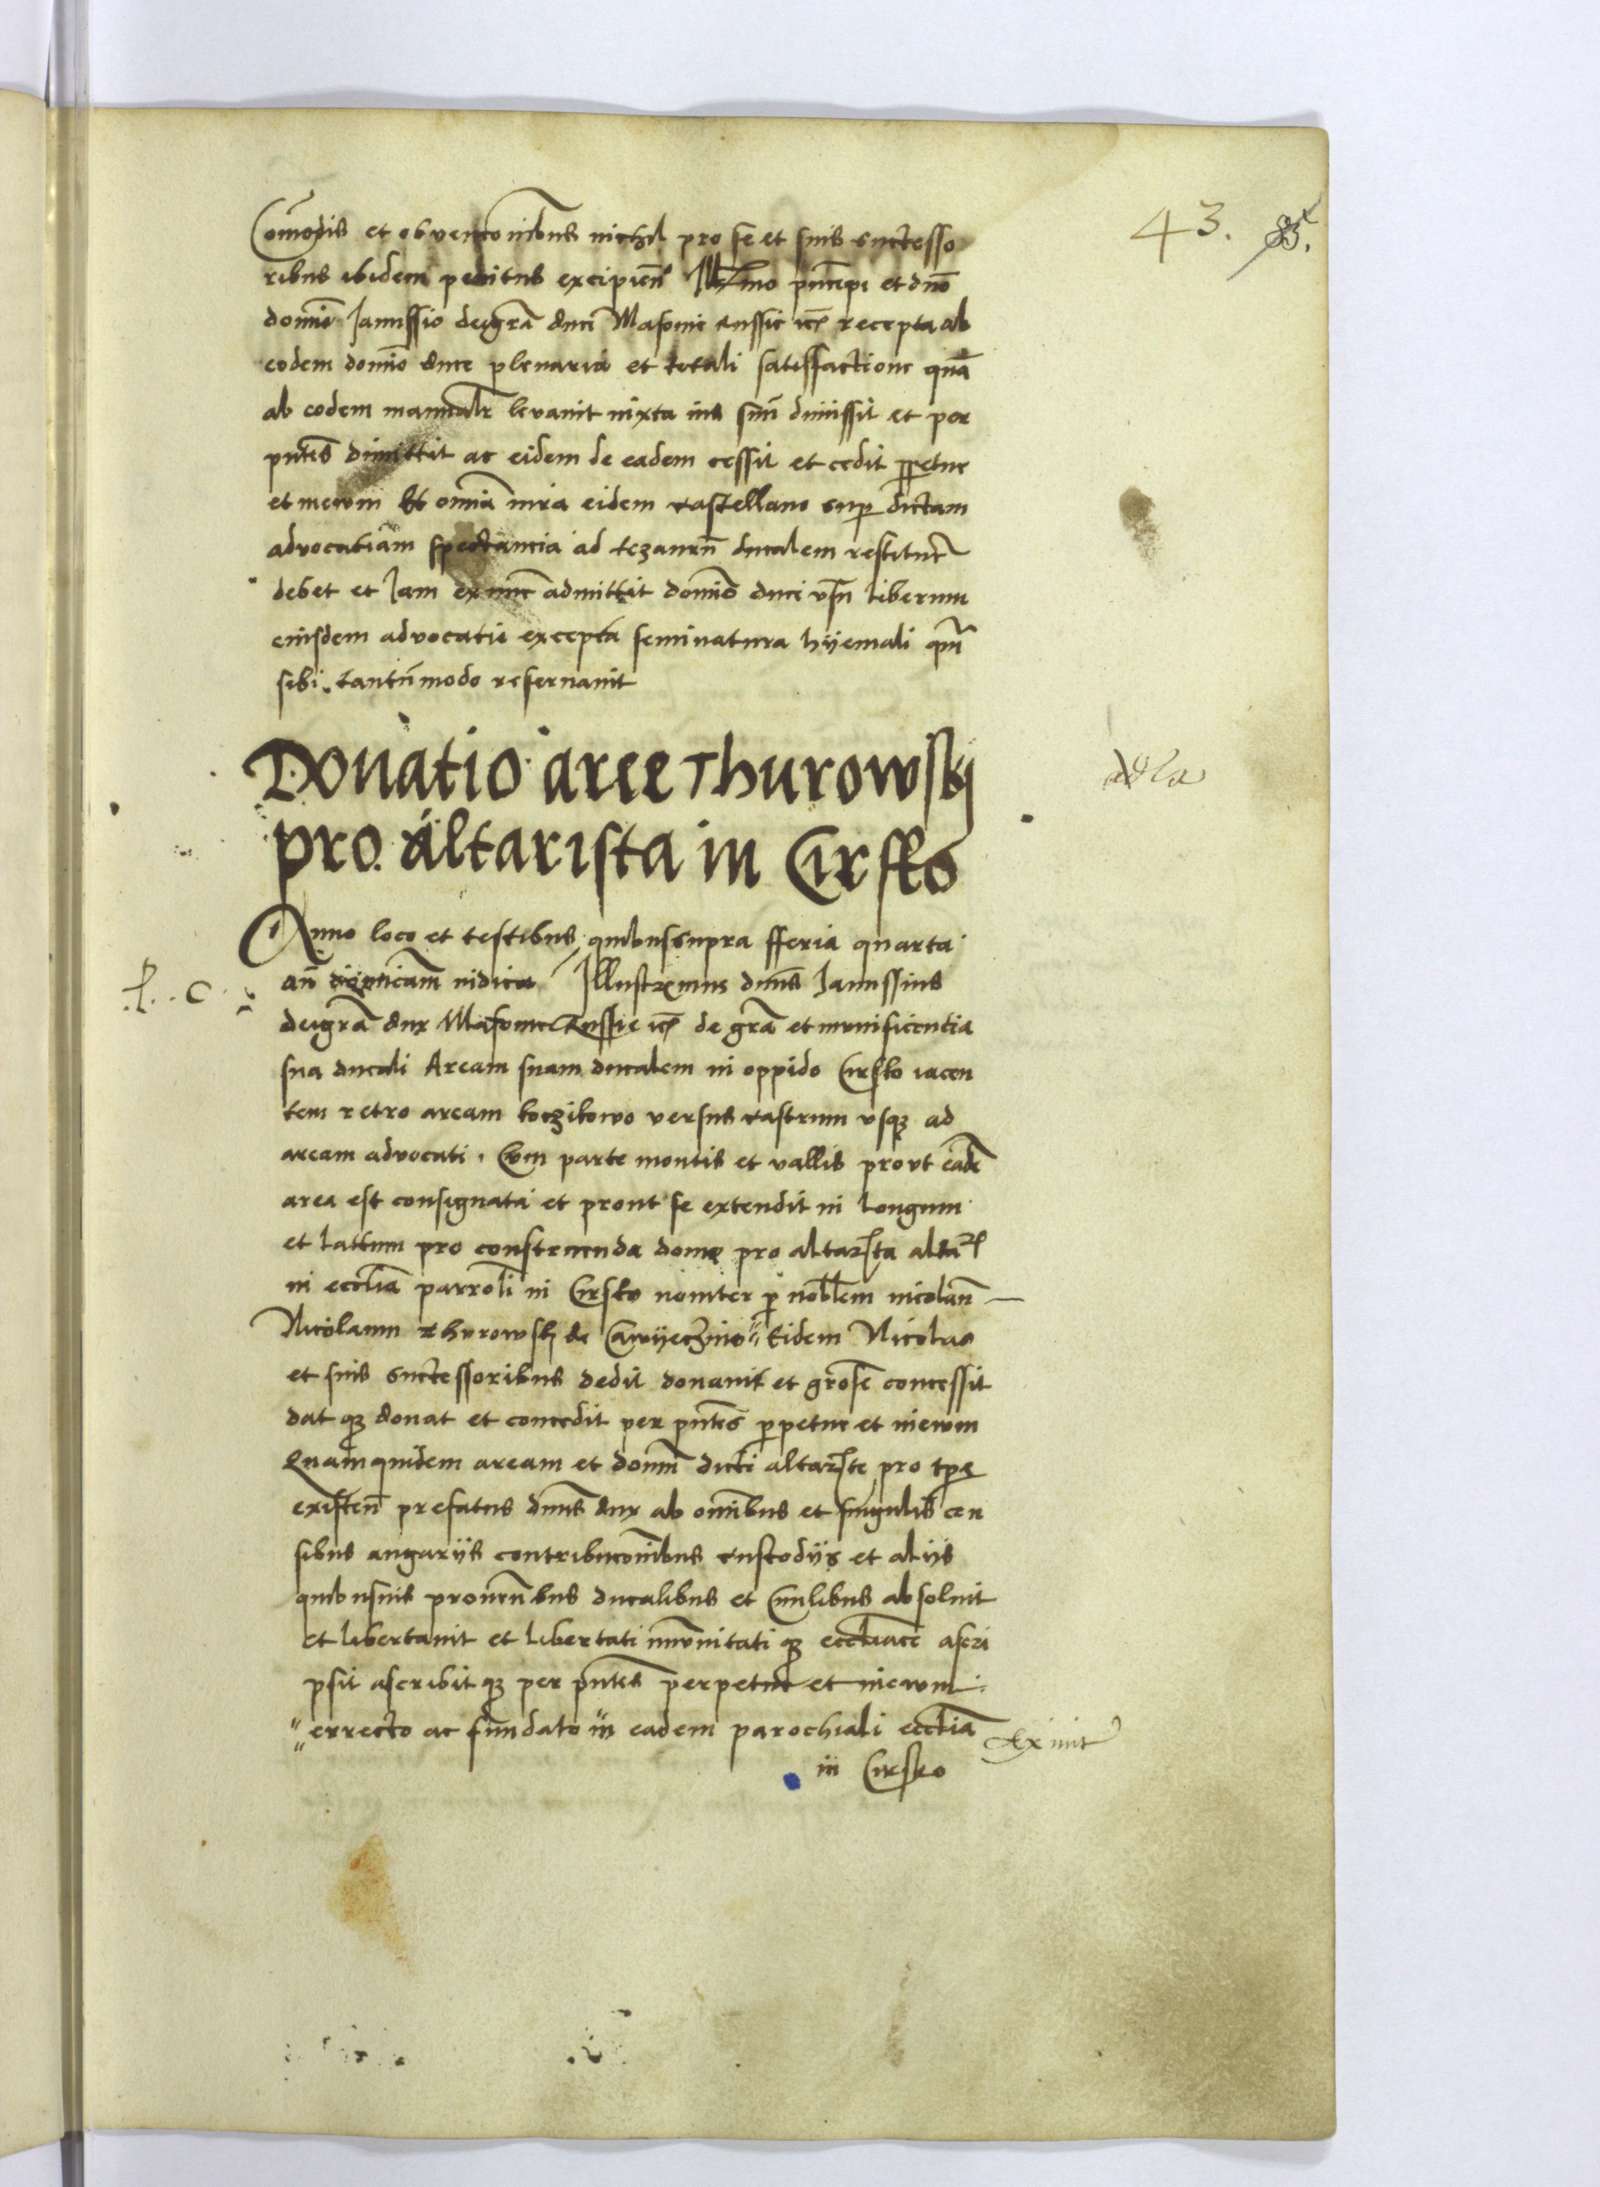 43. 85.
Comodis et obvenconibus nichil pro se et suis successo
ribus ibidem penitus excipien Illmo principi et dno
domio Janussio dei gra duci Masovie russie etc recepta ab
eodem domio duce plenaria et totali satisfactione qua
ab eodem manualr levavit iuxta ius suu dimissit et per
pntes dimittit ac eidem de eadem cessit et cedit ppetue
et in ewm Et omia iura eidem castellano sup dictam
advocatiam spectancia ad tezauru ducalem restituere
debet et Jam ex nunc admittit domio duci usu liberum
eiusdem advocatie excepta seminatura hyemali qua
sibi tantumodo reservavit
Donatio aree Thurowskj
pro altarista in Cirsko
Anno loco et testibus quibus supra fferia quarta
an dominicam iudica Illustrimus dnus Janussius
dei gra dux Masovie Russie etc de gra et munificentia
sua ducali Aream suam ducalem in oppido Cirsko iacen
tem retro aream koczikowo versus castrum usq ad
aream advocati. Cum parte montis et vallis prout eade
area est consignata et prout se extendit in longum
et lattum pro construenda domo pro altarista altar
in ecclia parroli in Cirsko noviter p noblem nicolau
Nicolaum Thurowskj de Cawyeczino Eidem Nicolao
et suis successoribus dedit donavit et grose concessit
dat q donat et concedit per pntes ppetue et in ewm
Quam quidem aream et domu dicti altariste pro tpe
existen prefatus dnus dux ab omibus et singulis cen
sibus angariis contribuconibus custodiis et aliis
quibusuis provenbus ducalibus et Civilibus absoluit
et libertavit et libertati immunitati q eccliace ascri
psit ascribit q per pntes perpetue et in ewm
errecto ac fundato in eadem parochiali ecclia
in Cirsko